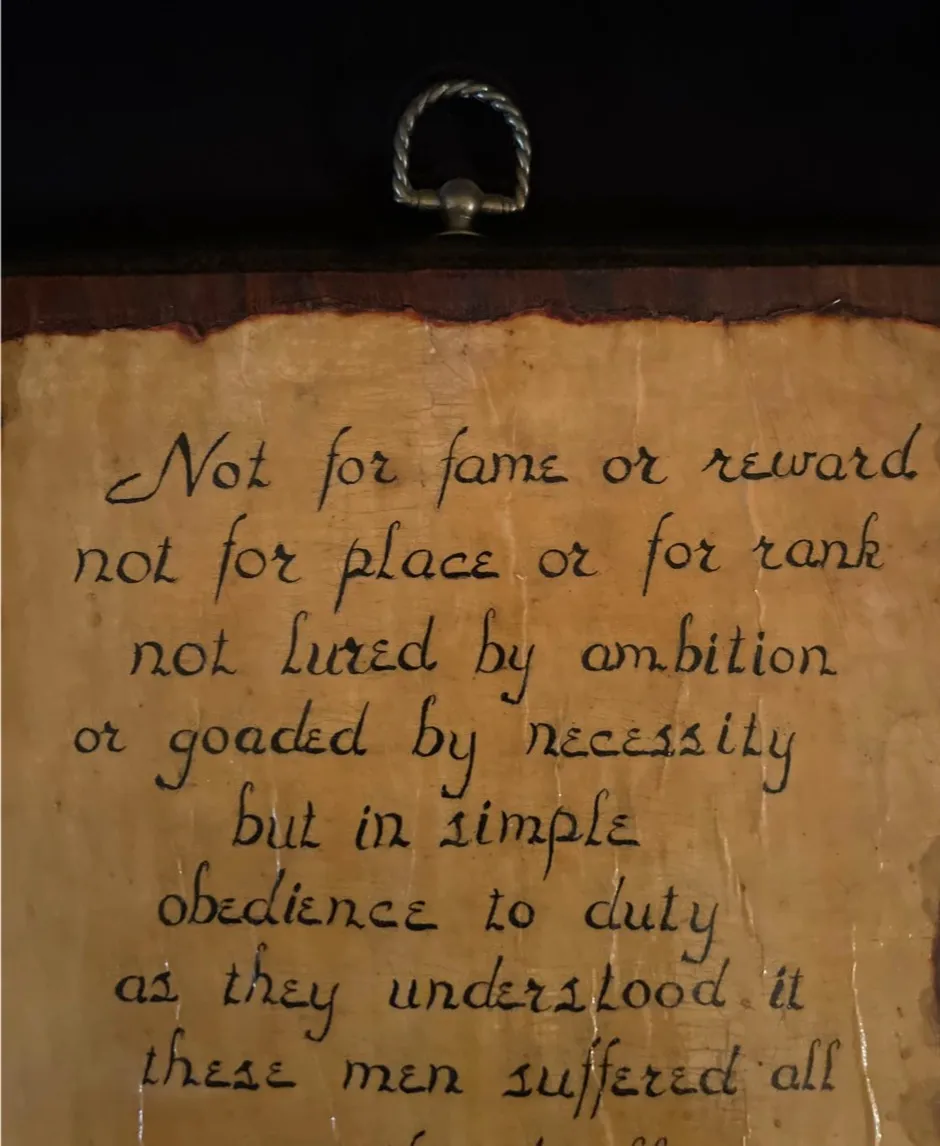 Not for fame or reward
not for place or for rank
not lured by ambition
or goaded by necessity
but in simple
obedience to duty
as they understood it
these men suffered all